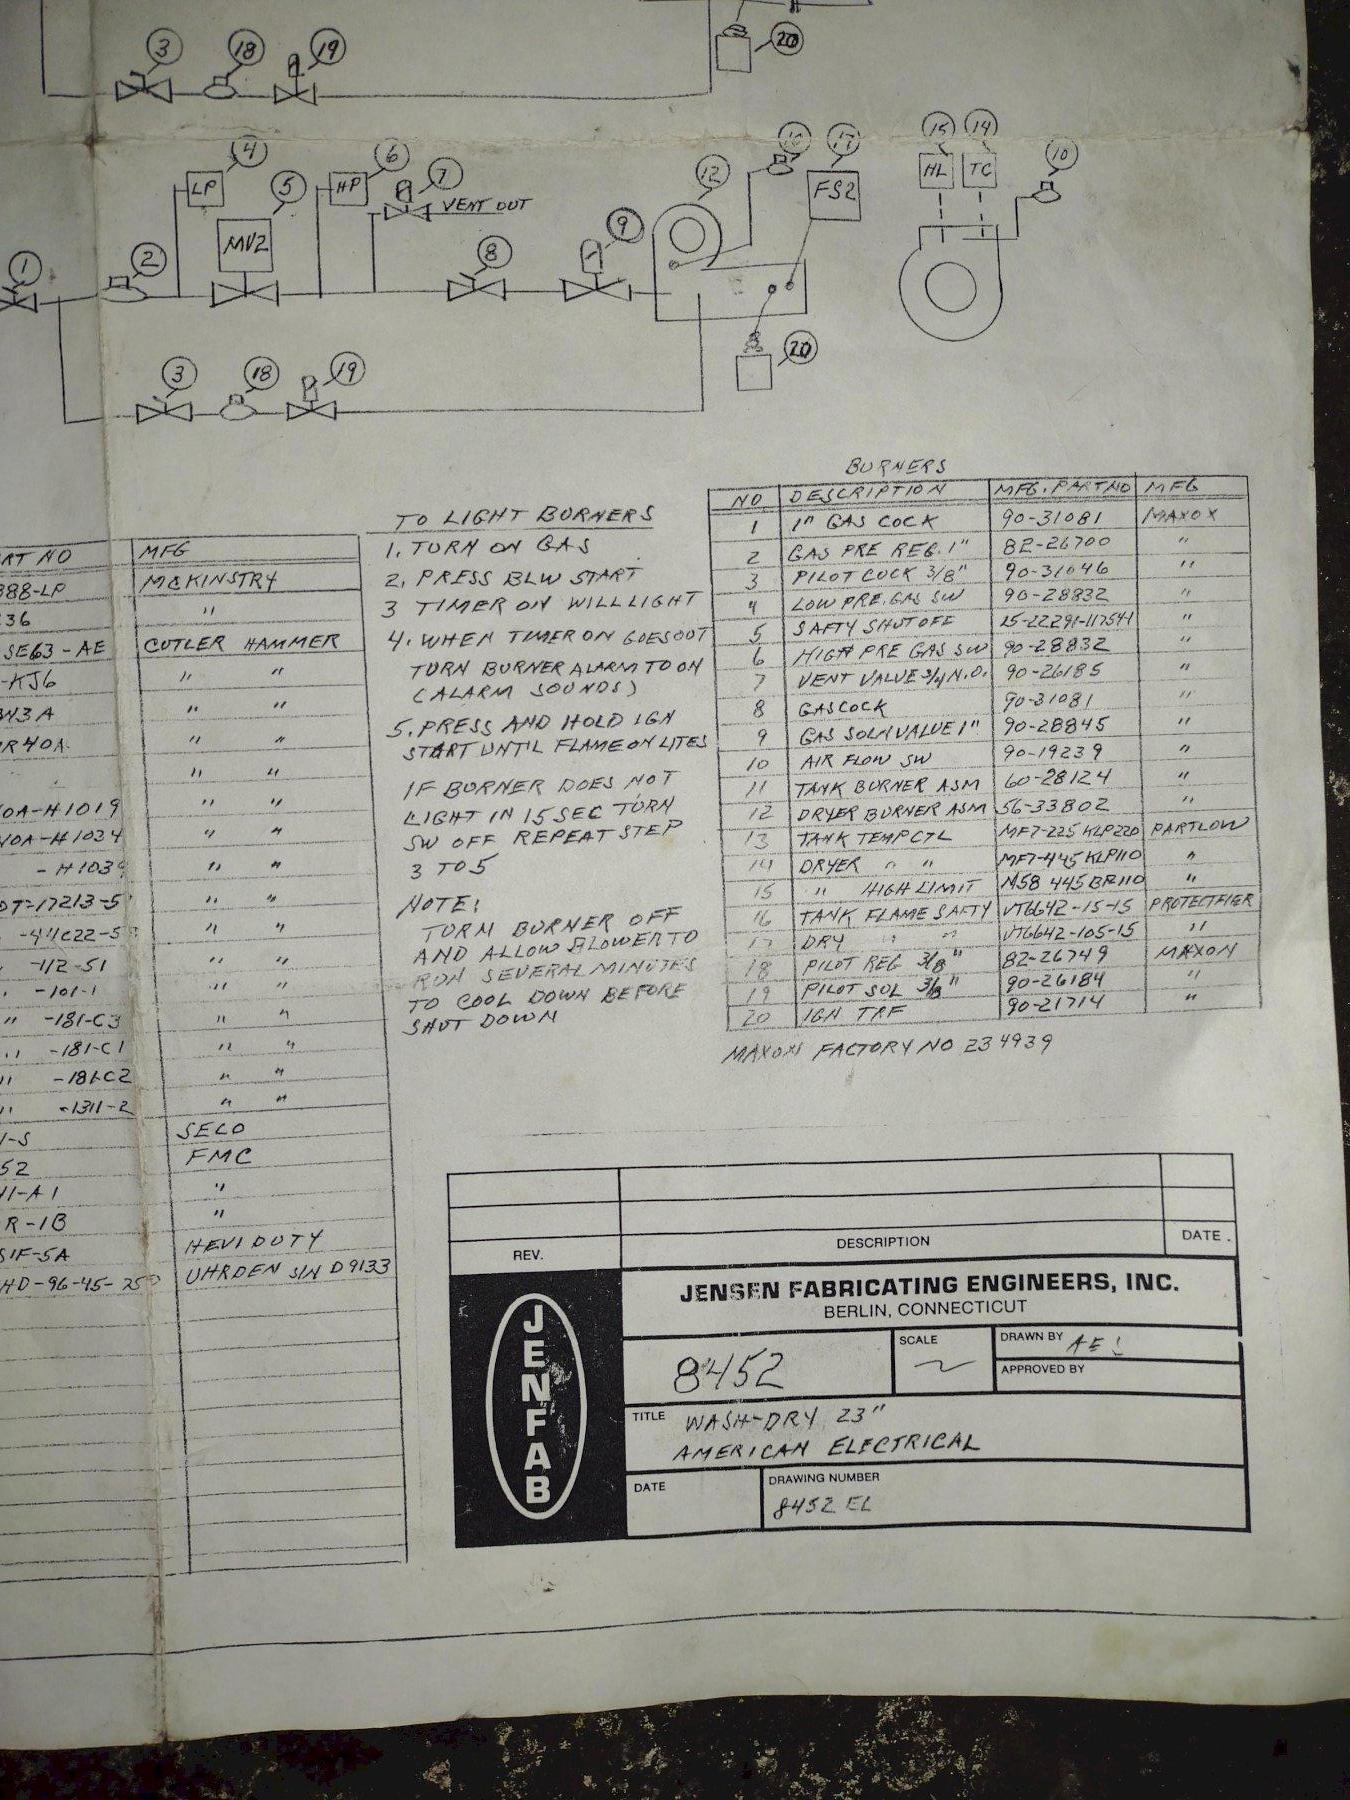 3 18 19
20
4 6 7
LP HP
5
VENT OUT
MV2
1 2 8 9
12 17
FS2
15 14 10
HL TC
20
3 18 19
TO LIGHT BURNERS
1. TURN ON GAS
2. PRESS BLW START
3 TIMER ON WILL LIGHT
4. WHEN TIMER ON GOES OUT
TURN BURNER ALARM TO ON
(ALARM SOUNDS)
5. PRESS AND HOLD IGN
START UNTIL FLAME ON LITES
IF BURNER DOES NOT
LIGHT IN 15 SEC TURN
SW OFF REPEAT STEP
3 TO 5
NOTE:
TURN BURNER OFF
AND ALLOW BLOWER TO
RUN SEVERAL MINUTES
TO COOL DOWN BEFORE
SHUT DOWN
BURNERS
NO DESCRIPTION MFG. PART NO MFG
1 1" GAS COCK 90-31081 MAXON
2 GAS PRE REG. 1" 82-26700 "
3 PILOT COCK 3/8" 90-31046 "
4 LOW PRE. GAS SW 90-28832 "
5 SAFTY SHUT OFF 25-22291-117541 "
6 HIGH PRE GAS SW 90-28832 "
7 VENT VALVE 3/4 N.O. 90-26185 "
8 GASCOCK 90-31081 "
9 GAS SOLN VALVE 1" 90-28845 "
10 AIR FLOW SW 90-19239 "
11 TANK BURNER ASM 60-28124 "
12 DRYER BURNER ASM 56-33802 "
13 TANK TEMP CTL MF7-225 KLP220 PARTLOW
14 DRYER " " MF7-445 KLP110 "
15 " HIGH LIMIT M58 445 BR110 "
16 TANK FLAME SAFTY VT6642-15-15 PROTECTFIER
17 DRY " " VT6642-105-15 "
18 PILOT REG 3/8" 82-26749 MAXON
19 PILOT SOL 3/8" 90-26184 "
20 IGN TRF 90-21714 "
MAXON FACTORY NO 234939
ART NO MFG
388-LP MCKINSTRY
36 "
SE63-AE CUTLER HAMMER
-KJ6 " "
W3A " "
R40A " "
" "
OA-H1019 " "
OA-H1034 " "
-H1039 " "
DT-17213-5 " "
-44C22-5 " "
-112-51 " "
-101-1 " "
" -181-C3 " "
" -181-C1 " "
" -181-C2 " "
" -1311-2 " "
1-S SECO
52 FMC
41-A1 "
R-1B "
51F-5A HEVI DUTY
HD-96-45-250 UHRDEN S/N D9133
REV. DESCRIPTION DATE.
JENFAB
JENSEN FABRICATING ENGINEERS, INC.
BERLIN, CONNECTICUT
8452
SCALE
DRAWN BY
APPROVED BY
TITLE WASH-DRY 23"
AMERICAN ELECTRICAL
DATE
DRAWING NUMBER
8452 EL